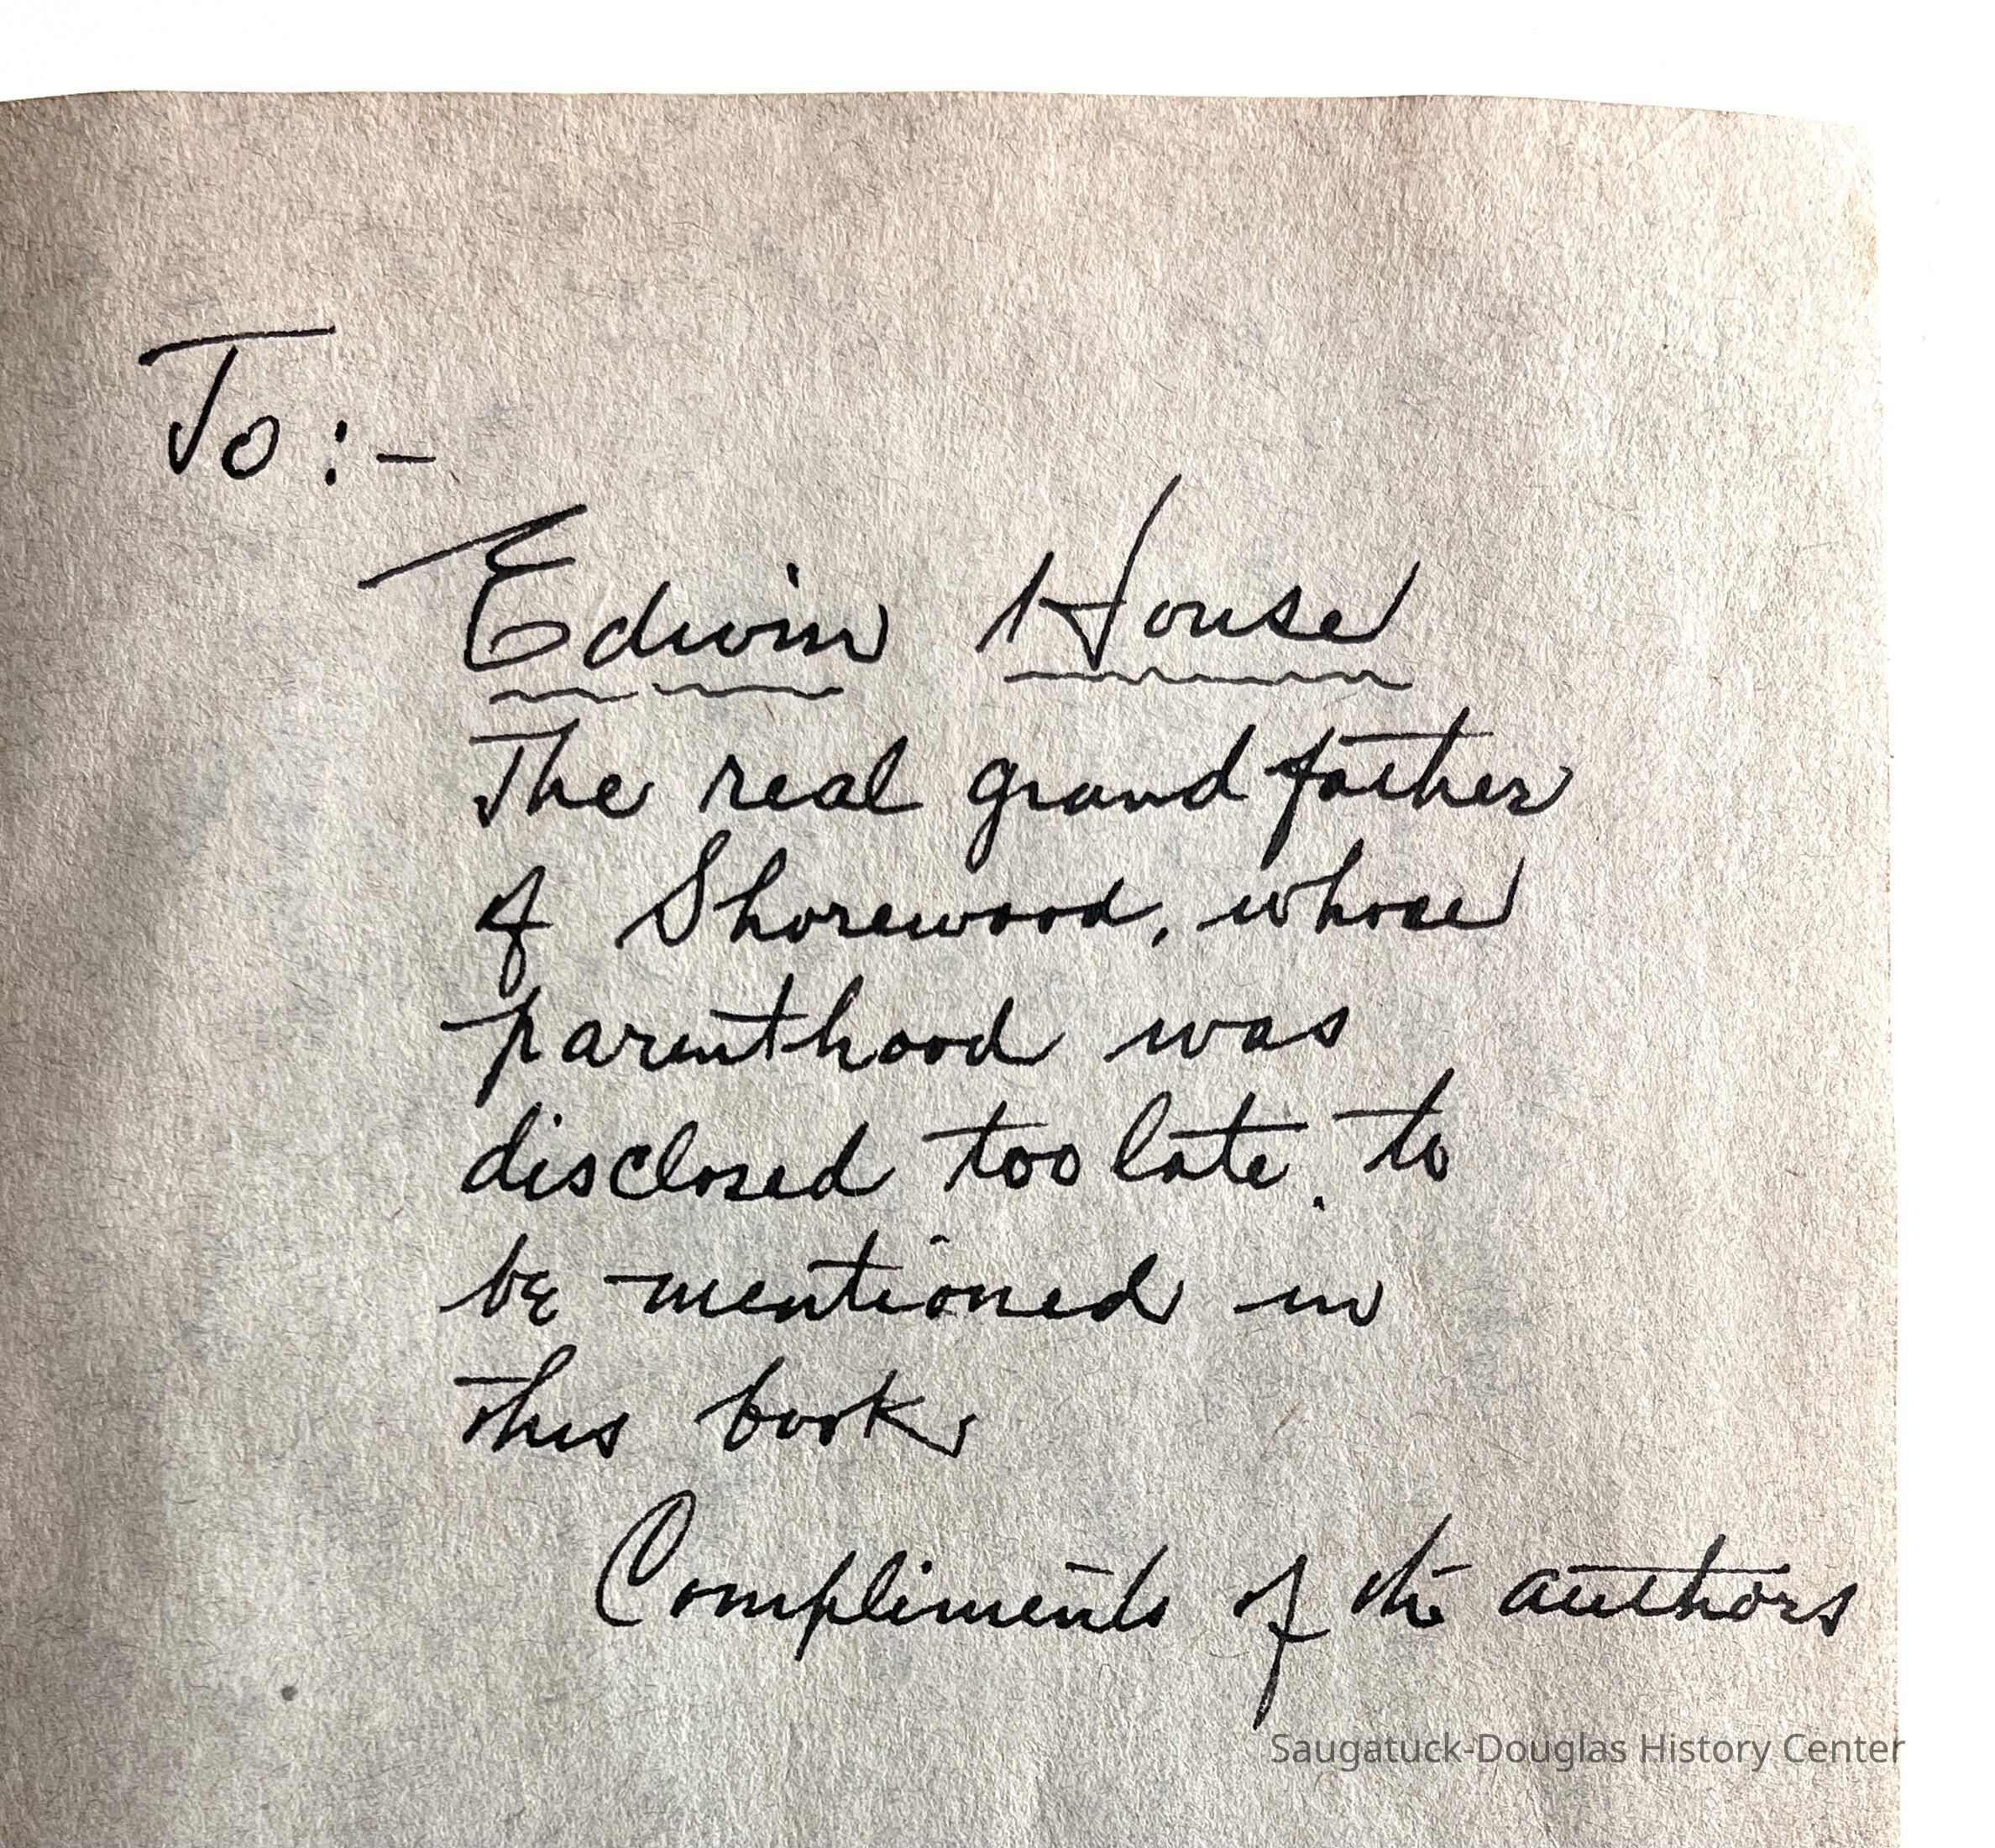 To:-
Edwin House
The real grandfather
of Shorewood, whose
parenthood was
disclosed too late. to
be mentioned in
this book
Compliments of the authors
Saugatuck-Douglas History Center